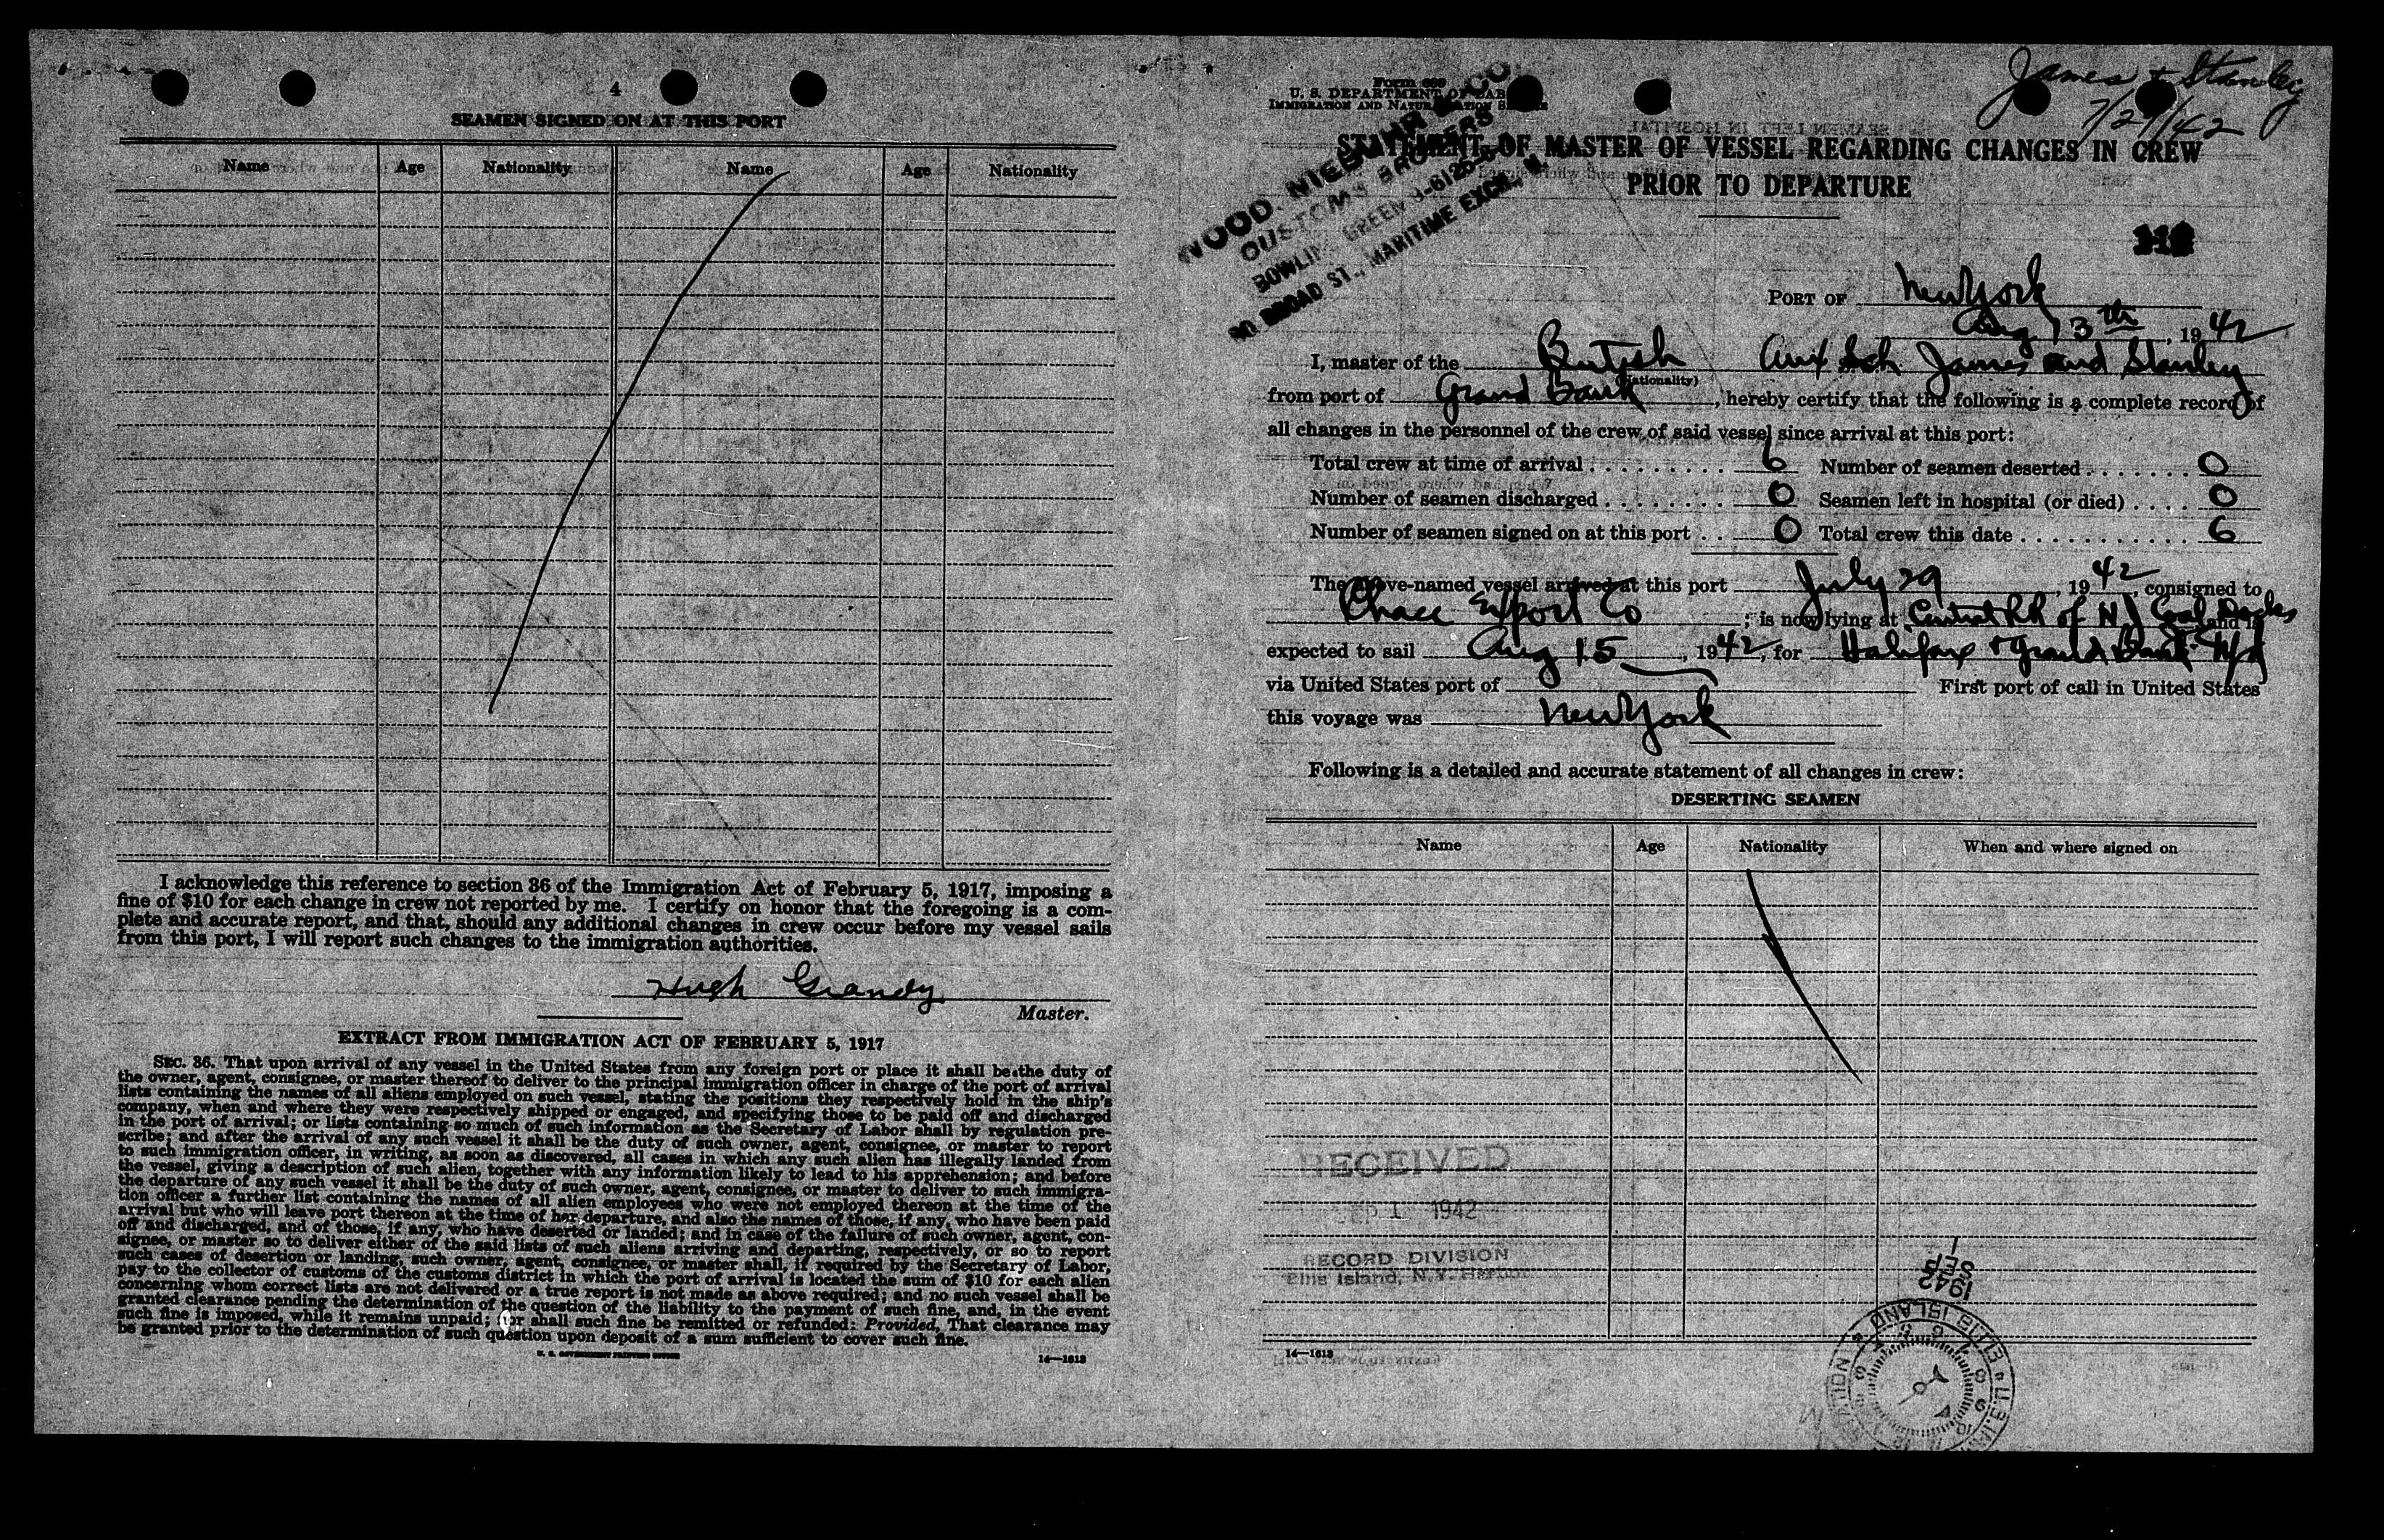 4
SEAMEN SIGNED ON AT THIS PORT
Name Age Nationality Name Age Nationality
I acknowledge this reference to section 36 of the Immigration Act of February 5, 1917, imposing a
fine of $10 for each change in crew not reported by me. I certify on honor that the foregoing is a com-
plete and accurate report, and that, should any additional changes in crew occur before my vessel sails
from this port, I will report such changes to the immigration authorities.
Hugh Grandy
Master.
EXTRACT FROM IMMIGRATION ACT OF FEBRUARY 5, 1917
SEC. 36. That upon arrival of any vessel in the United States from any foreign port or place it shall be the duty of
the owner, agent, consignee, or master thereof to deliver to the principal immigration officer in charge of the port of arrival
lists containing the names of all aliens employed on such vessel, stating the positions they respectively hold in the ship's
company, when and where they were respectively shipped or engaged, and specifying those to be paid off and discharged
in the port of arrival; or lists containing so much of such information as the Secretary of Labor shall by regulation pre-
scribe; and after the arrival of any such vessel it shall be the duty of such owner, agent, consignee, or master to report
to such immigration officer, in writing, as soon as discovered, all cases in which any such alien has illegally landed from
the vessel, giving a description of such alien, together with any information likely to lead to his apprehension; and before
the departure of any such vessel it shall be the duty of such owner, agent, consignee, or master to deliver to such immigra-
tion officer a further list containing the names of all alien employees who were not employed thereon at the time of the
arrival but who will leave port thereon at the time of her departure, and also the names of those, if any, who have been paid
off and discharged, and of those, if any, who have deserted or landed; and in case of the failure of such owner, agent, con-
signee, or master so to deliver either of the said lists of such aliens arriving and departing, respectively, or so to report
such cases of desertion or landing, such owner, agent, consignee, or master shall, if required by the Secretary of Labor,
pay to the collector of customs of the customs district in which the port of arrival is located the sum of $10 for each alien
concerning whom correct lists are not delivered or a true report is not made as above required; and no such vessel shall be
granted clearance pending the determination of the question of the liability to the payment of such fine, and, in the event
such fine is imposed, while it remains unpaid; nor shall such fine be remitted or refunded: Provided, That clearance may
be granted prior to the determination of such question upon deposit of a sum sufficient to cover such fine.
U. S. GOVERNMENT PRINTING OFFICE 14—1613
James + Stanley
7/29/42
Form 689
U. S. DEPARTMENT OF LABOR
IMMIGRATION AND NATURALIZATION SERVICE
WOOD, NIEBUHR & CO.
CUSTOMS BROKERS
BOWLING GREEN 9-6126
80 BROAD ST., MARITIME EXCH.
STATEMENT OF MASTER OF VESSEL REGARDING CHANGES IN CREW
PRIOR TO DEPARTURE
PORT OF New York
Aug 13th, 1942
I, master of the British Aux Sch. James and Stanley
(Nationality)
from port of Grand Bank, hereby certify that the following is a complete record of
all changes in the personnel of the crew of said vessel since arrival at this port:
Total crew at time of arrival 6 Number of seamen deserted 0
Number of seamen discharged 0 Seamen left in hospital (or died) 0
Number of seamen signed on at this port 0 Total crew this date 6
The above-named vessel arrived at this port July 29, 1942, consigned to
Chace Export Co; is now lying at Central RR of NJ Coal Docks and is
expected to sail Aug 15, 1942, for Halifax + Grand Bank Nfd
via United States port of First port of call in United States
this voyage was New York
Following is a detailed and accurate statement of all changes in crew:
DESERTING SEAMEN
Name Age Nationality When and where signed on
RECEIVED
SEP 1 1942
RECORD DIVISION
Ellis Island, N.Y. Harbor
1942
SEP
1
ELLIS ISLAND
14—1613